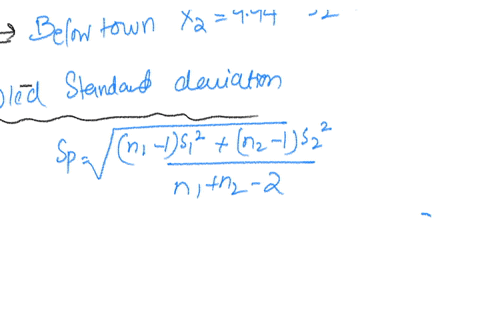 ⇒ Below town x₂ =
oled Standard deviation
Sp = √((n₁ -1)S₁² + (n₂ -1)S₂² / n₁ + n₂ - 2)